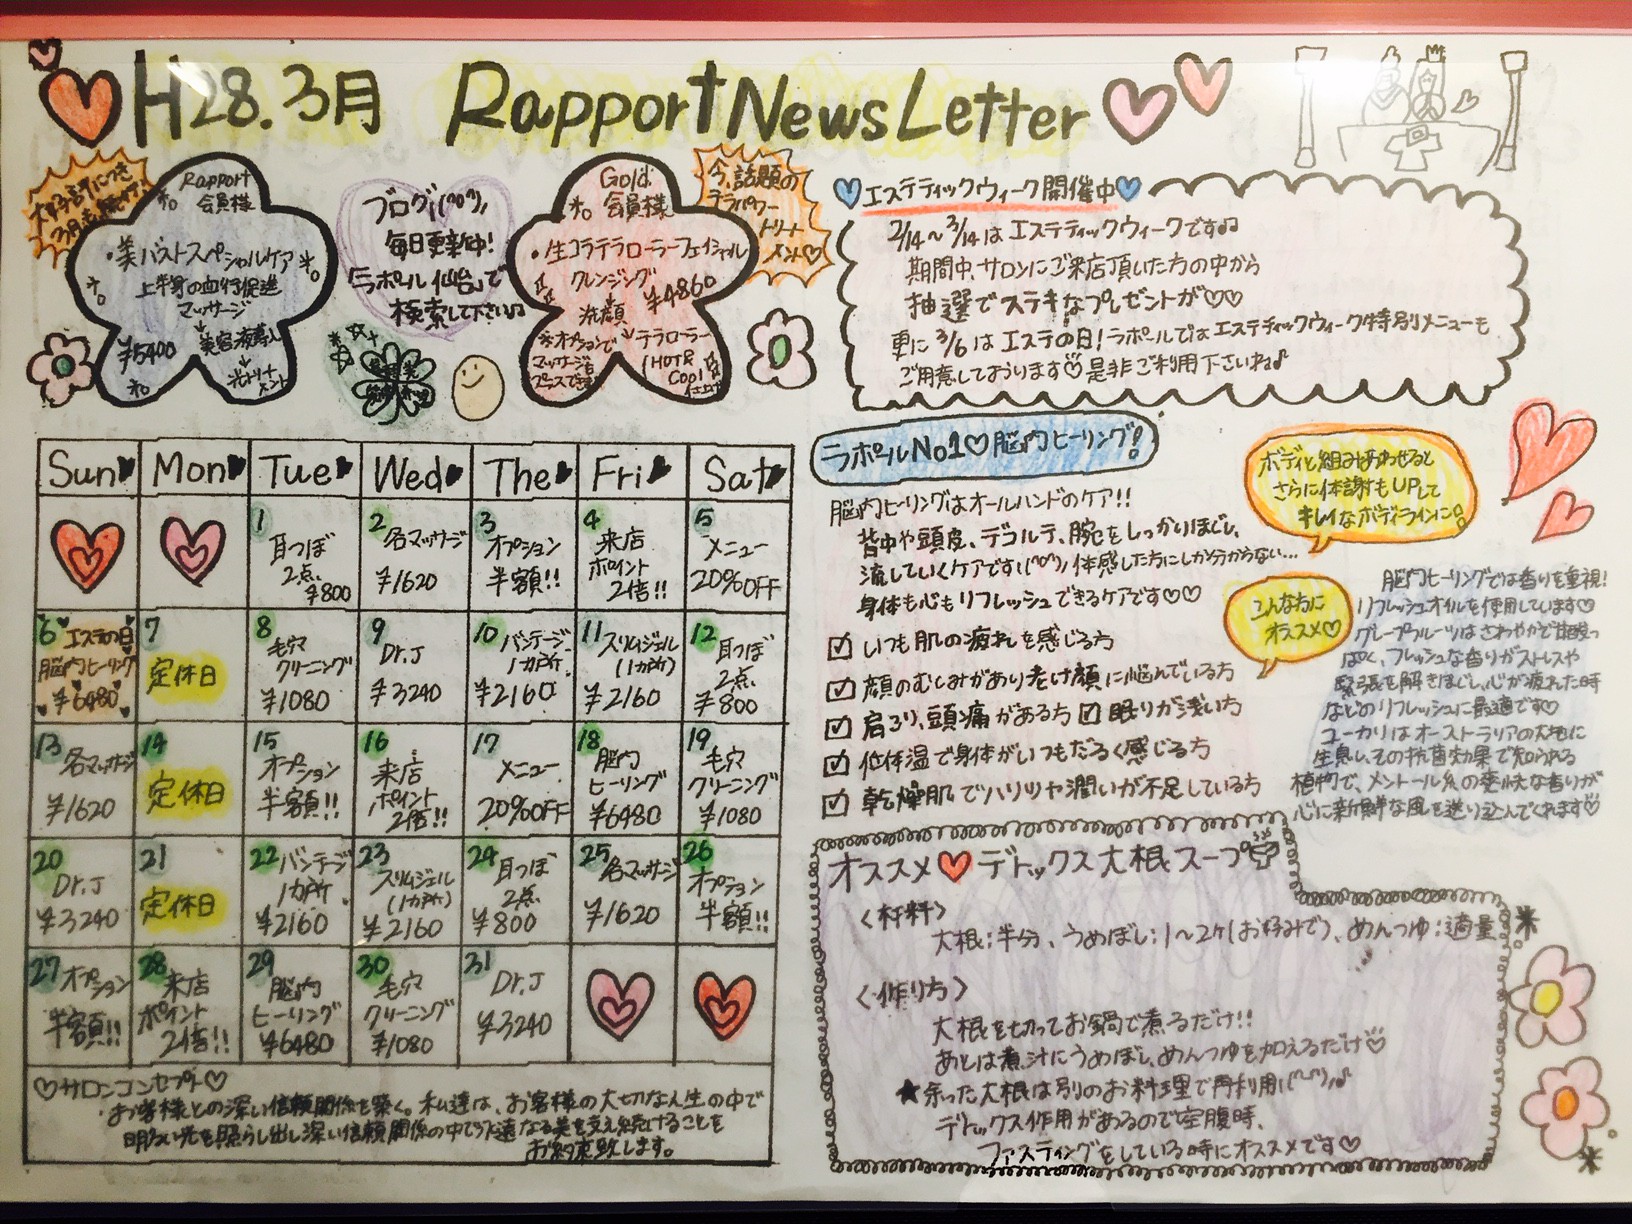 H28.3月 Rapport News Letter
大好評につき
Rapport
会員様
・美バストスペシャルケア
上半身の血行促進
マッサージ
美容液導入
光トリート
メント
¥5400
ブログ
毎日更新中!
「ラポール仙台」で
検索して下さい♫
Gold
会員様
・生コラテラローラーフェイシャル
クレンジング
¥4860
洗顔
テラローラー
(HOT&
Cool
仕上げ
※オプションで
マッサージも
プラスできます
今、話題の
テラパワー
トリート
メント♡
エステティックウィーク開催中
2/14～3/14はエステティックウィークです♫
期間中、サロンにご来店頂いた方の中から
抽選でステキなプレゼントが♡♡
更に3/6はエステの日!ラポールではエステティックウィーク特別メニューも
ご用意しております♡是非ご利用下さいね♪
Sun Mon Tue Wed The Fri Sat
1 耳つぼ 2点 ¥800
2 各マッサージ ¥1620
3 オプション 半額!!
4 来店 ポイント 2倍!!
5 メニュー 20%OFF
6 エステの日 脳内ヒーリング ¥6480
7 定休日
8 毛穴 クリーニング ¥1080
9 Dr.J ¥3240
10 バンテージ 1カ所 ¥2160
11 スリムジェル (1カ所) ¥2160
12 耳つぼ 2点 ¥800
13 各マッサージ ¥1620
14 定休日
15 オプション 半額!!
16 来店 ポイント 2倍!!
17 メニュー 20%OFF
18 脳内 ヒーリング ¥6480
19 毛穴 クリーニング ¥1080
20 Dr.J ¥3240
21 定休日
22 バンテージ 1カ所 ¥2160
23 スリムジェル (1カ所) ¥2160
24 耳つぼ 2点 ¥800
25 各マッサージ ¥1620
26 オプション 半額!!
27 オプション 半額!!
28 来店 ポイント 2倍!!
29 脳内 ヒーリング ¥6480
30 毛穴 クリーニング ¥1080
31 Dr.J ¥3240
♡サロンコンセプト♡
お客様との深い信頼関係を築く。私達は、お客様の大切な人生の中で
明るい光を照らし出し深い信頼関係の中で永遠なる美を支え続けることを
お約束致します。
ラポールNo1♡脳内ヒーリング!
脳内ヒーリングはオールハンドのケア!!
背中や頭皮、デコルテ、腕をしっかりほぐし、
流していくケアです 体感した方にしか分からない...
身体も心もリフレッシュできるケアです♡♡
ボディと組みあわせると
さらに体謝もUPして
キレイなボディラインに!
こんな方に
オススメ♡
☑いつも肌の疲れを感じる方
☑顔のむくみがあり老け顔に悩んでいる方
☑肩こり、頭痛がある方 ☑眠りが浅い方
☑低体温で身体がいつもだるく感じる方
☑乾燥肌でハリツヤや潤いが不足している方
脳内ヒーリングでは香りを重視!
リフレッシュオイルを使用しています♡
グレープフルーツはさわやかで甘酸っ
ぱく、フレッシュな香りがストレスや
緊張を解きほぐし、心が疲れた時
などのリフレッシュに最適です♡
ユーカリはオーストラリアの大地に
生息し、その抗菌効果で知られる
植物で、メントール系の爽快な香りが
心に新鮮な風を送り込んでくれます♡
オススメ♥デトックス大根スープ
〈材料〉
大根:半分、うめぼし:1～2ヶ(お好みで)、めんつゆ:適量
〈作り方〉
大根を切ってお鍋で煮るだけ!!
あとは煮汁にうめぼし、めんつゆを加えるだけ♡
★余った大根は別のお料理で再利用
デトックス作用があるので空腹時、
ファスティングをしている時にオススメです♡